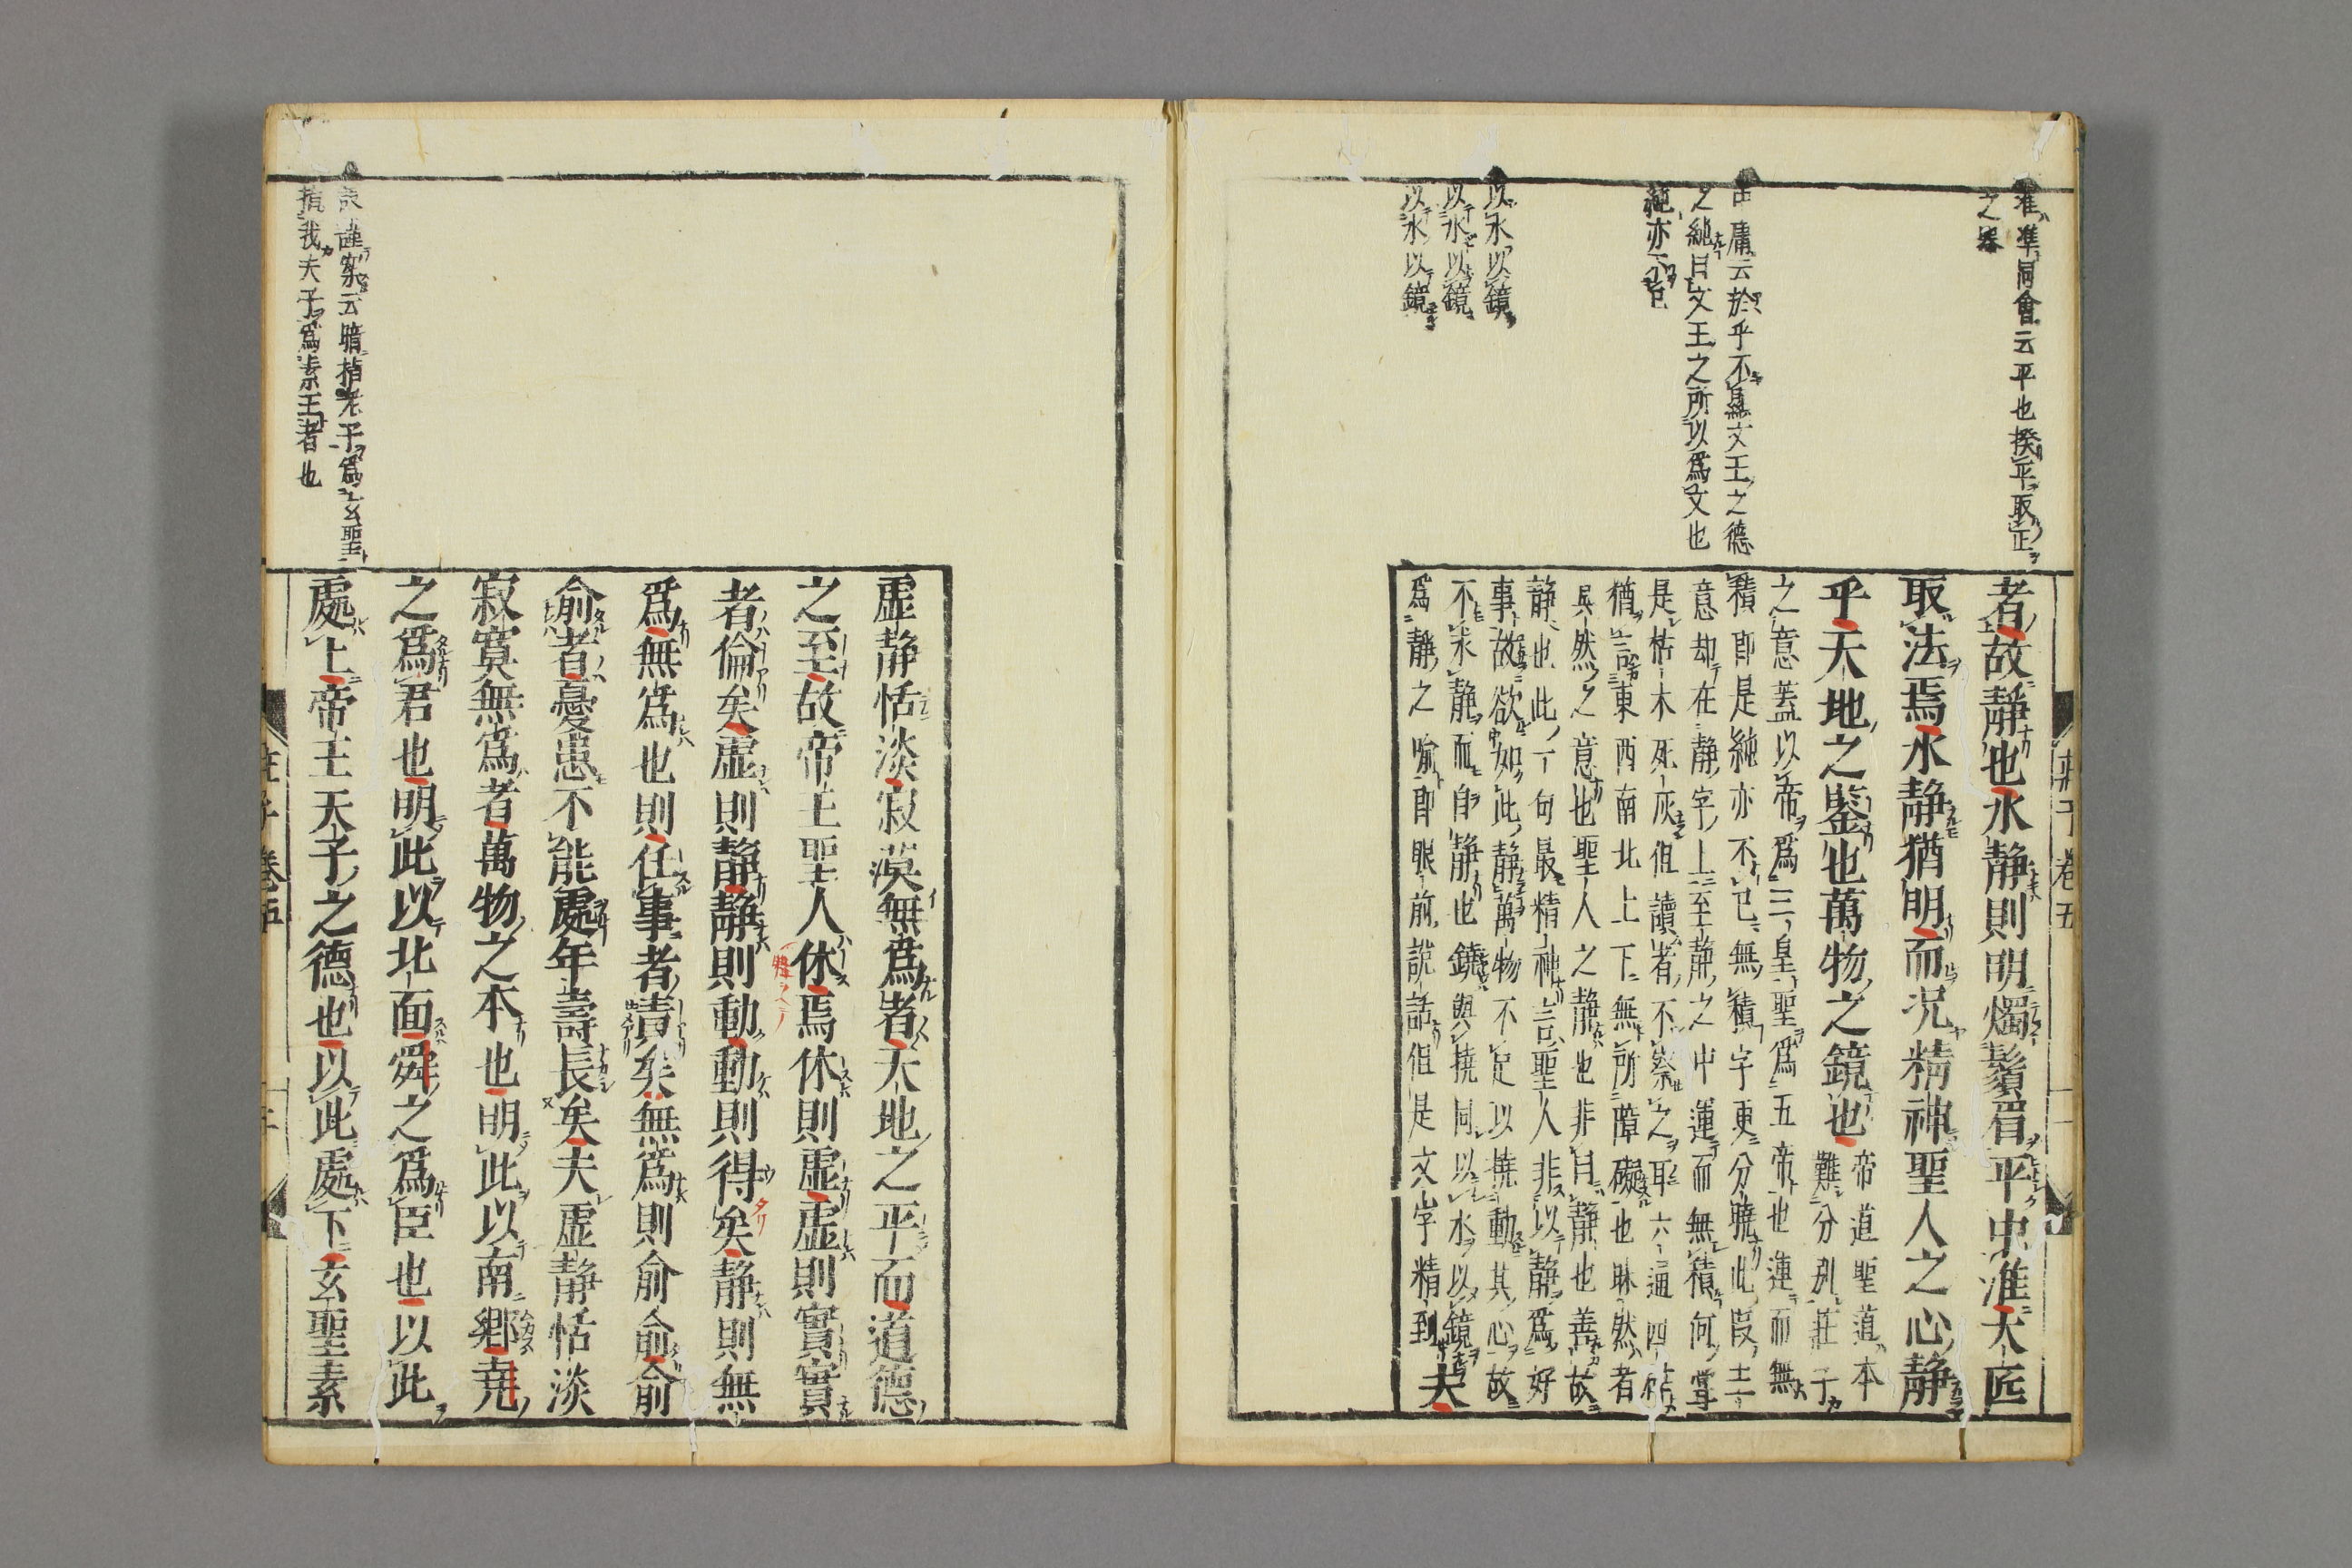 准準同會云平也揆平取正
之器
中庸云於乎不顯文王之德
之純曰文王之所以爲文也
純亦不已
以水以鏡
以水以鏡
以水以鏡
莊子卷五
者故靜也水靜則明燭鬚眉平中准大匠
取法焉水靜猶明而况精神聖人之心靜
乎天地之鑒也萬物之鏡也帝道聖道本
難分別莊子
之意蓋以帝爲三皇聖爲五帝也運而無
積即是純亦不已無積字更分曉此段主
意却在靜字上至靜之中運而無積何嘗
是枯木死灰但讀者不察之耳六通四
猶言東西南北上下無所障礙也昧然者
冥然之意也聖人之靜也非曰靜也善故
靜也此一句最精神言聖人非以靜爲好
事故欲如此靜萬物不足以撓動其心故
不求靜而自靜也鐃與撓同以水以鏡
爲靜之喻即眼前說話但是文字精到夫
虛靜恬淡寂漠無爲者天地之平而道德
之至故帝王聖人休焉休則虛虛則實實
者倫矣虛則靜靜則動動則得矣靜則無
爲無爲也則任事者責矣無爲則俞俞俞
俞者憂患不能處年壽長矣夫虛靜恬淡
寂寞無爲者萬物之本也明此以南鄉堯
之爲君也明此以北面舜之爲臣也以此
處上帝王天子之德也以此處下玄聖素
云暗指老子爲玄聖
指我夫子爲素王者也
莊子卷五